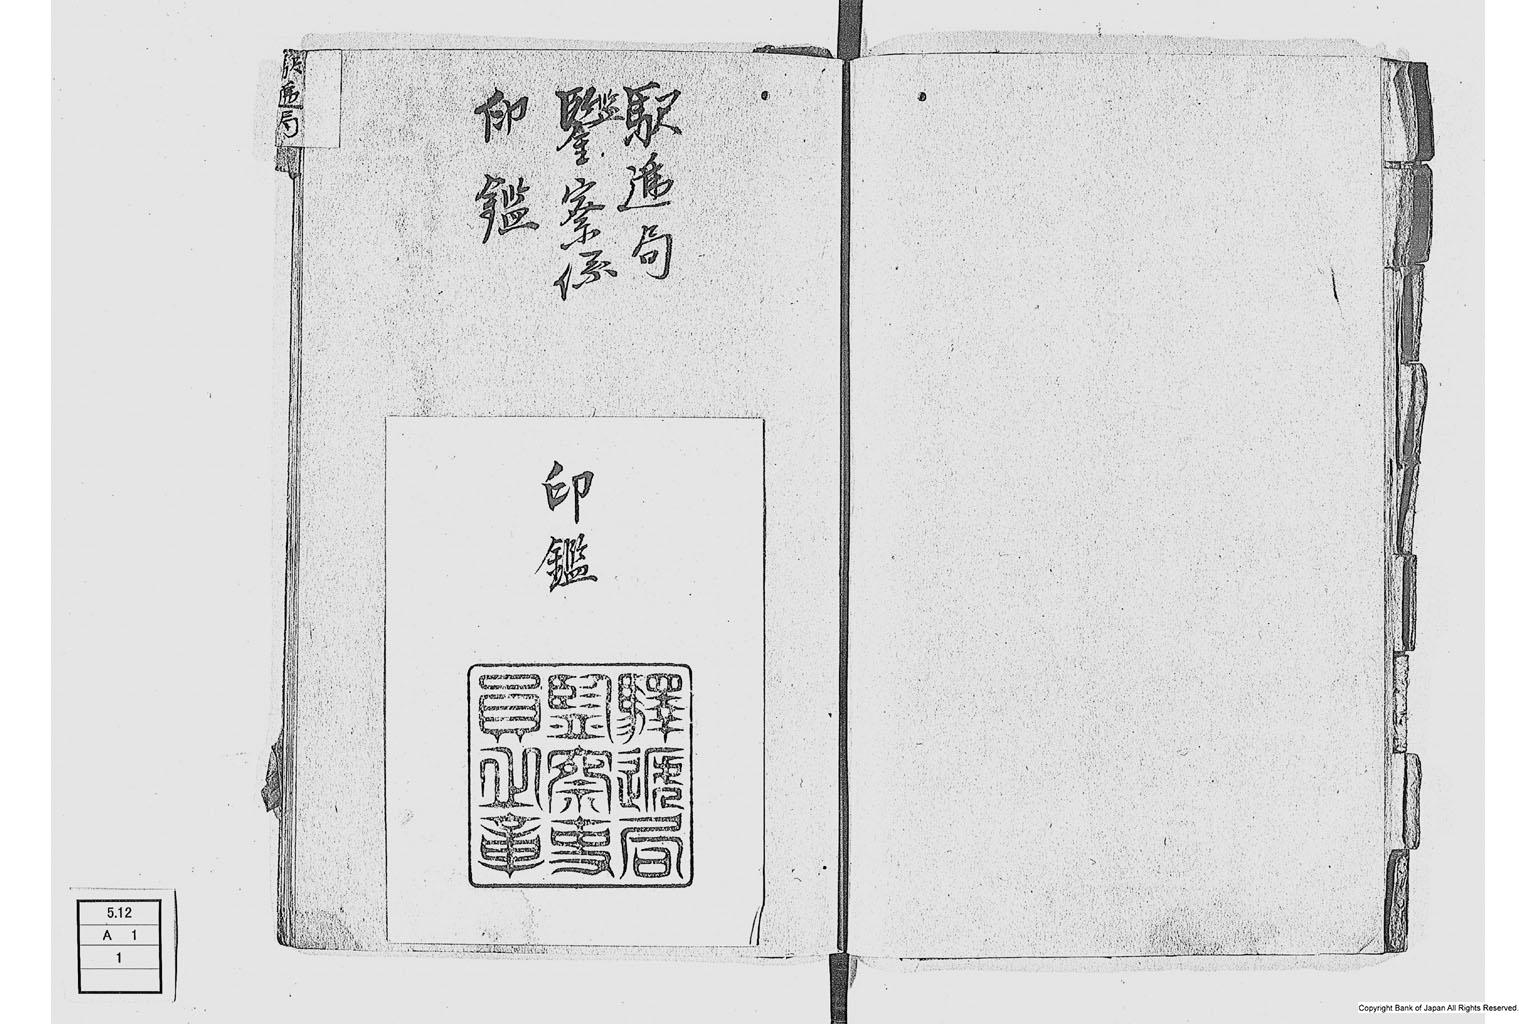 駅逓局
駅逓局
監
鑒察係
印鑑
印鑑
驛遞局
監察吏
員之章
5.12
A 1
1
Copyright Bank of Japan All Rights Reserved.